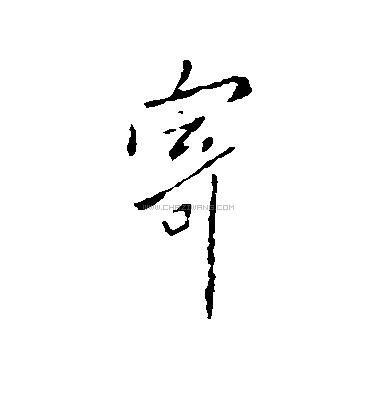 寄
WWW.CHAZIWANG.COM